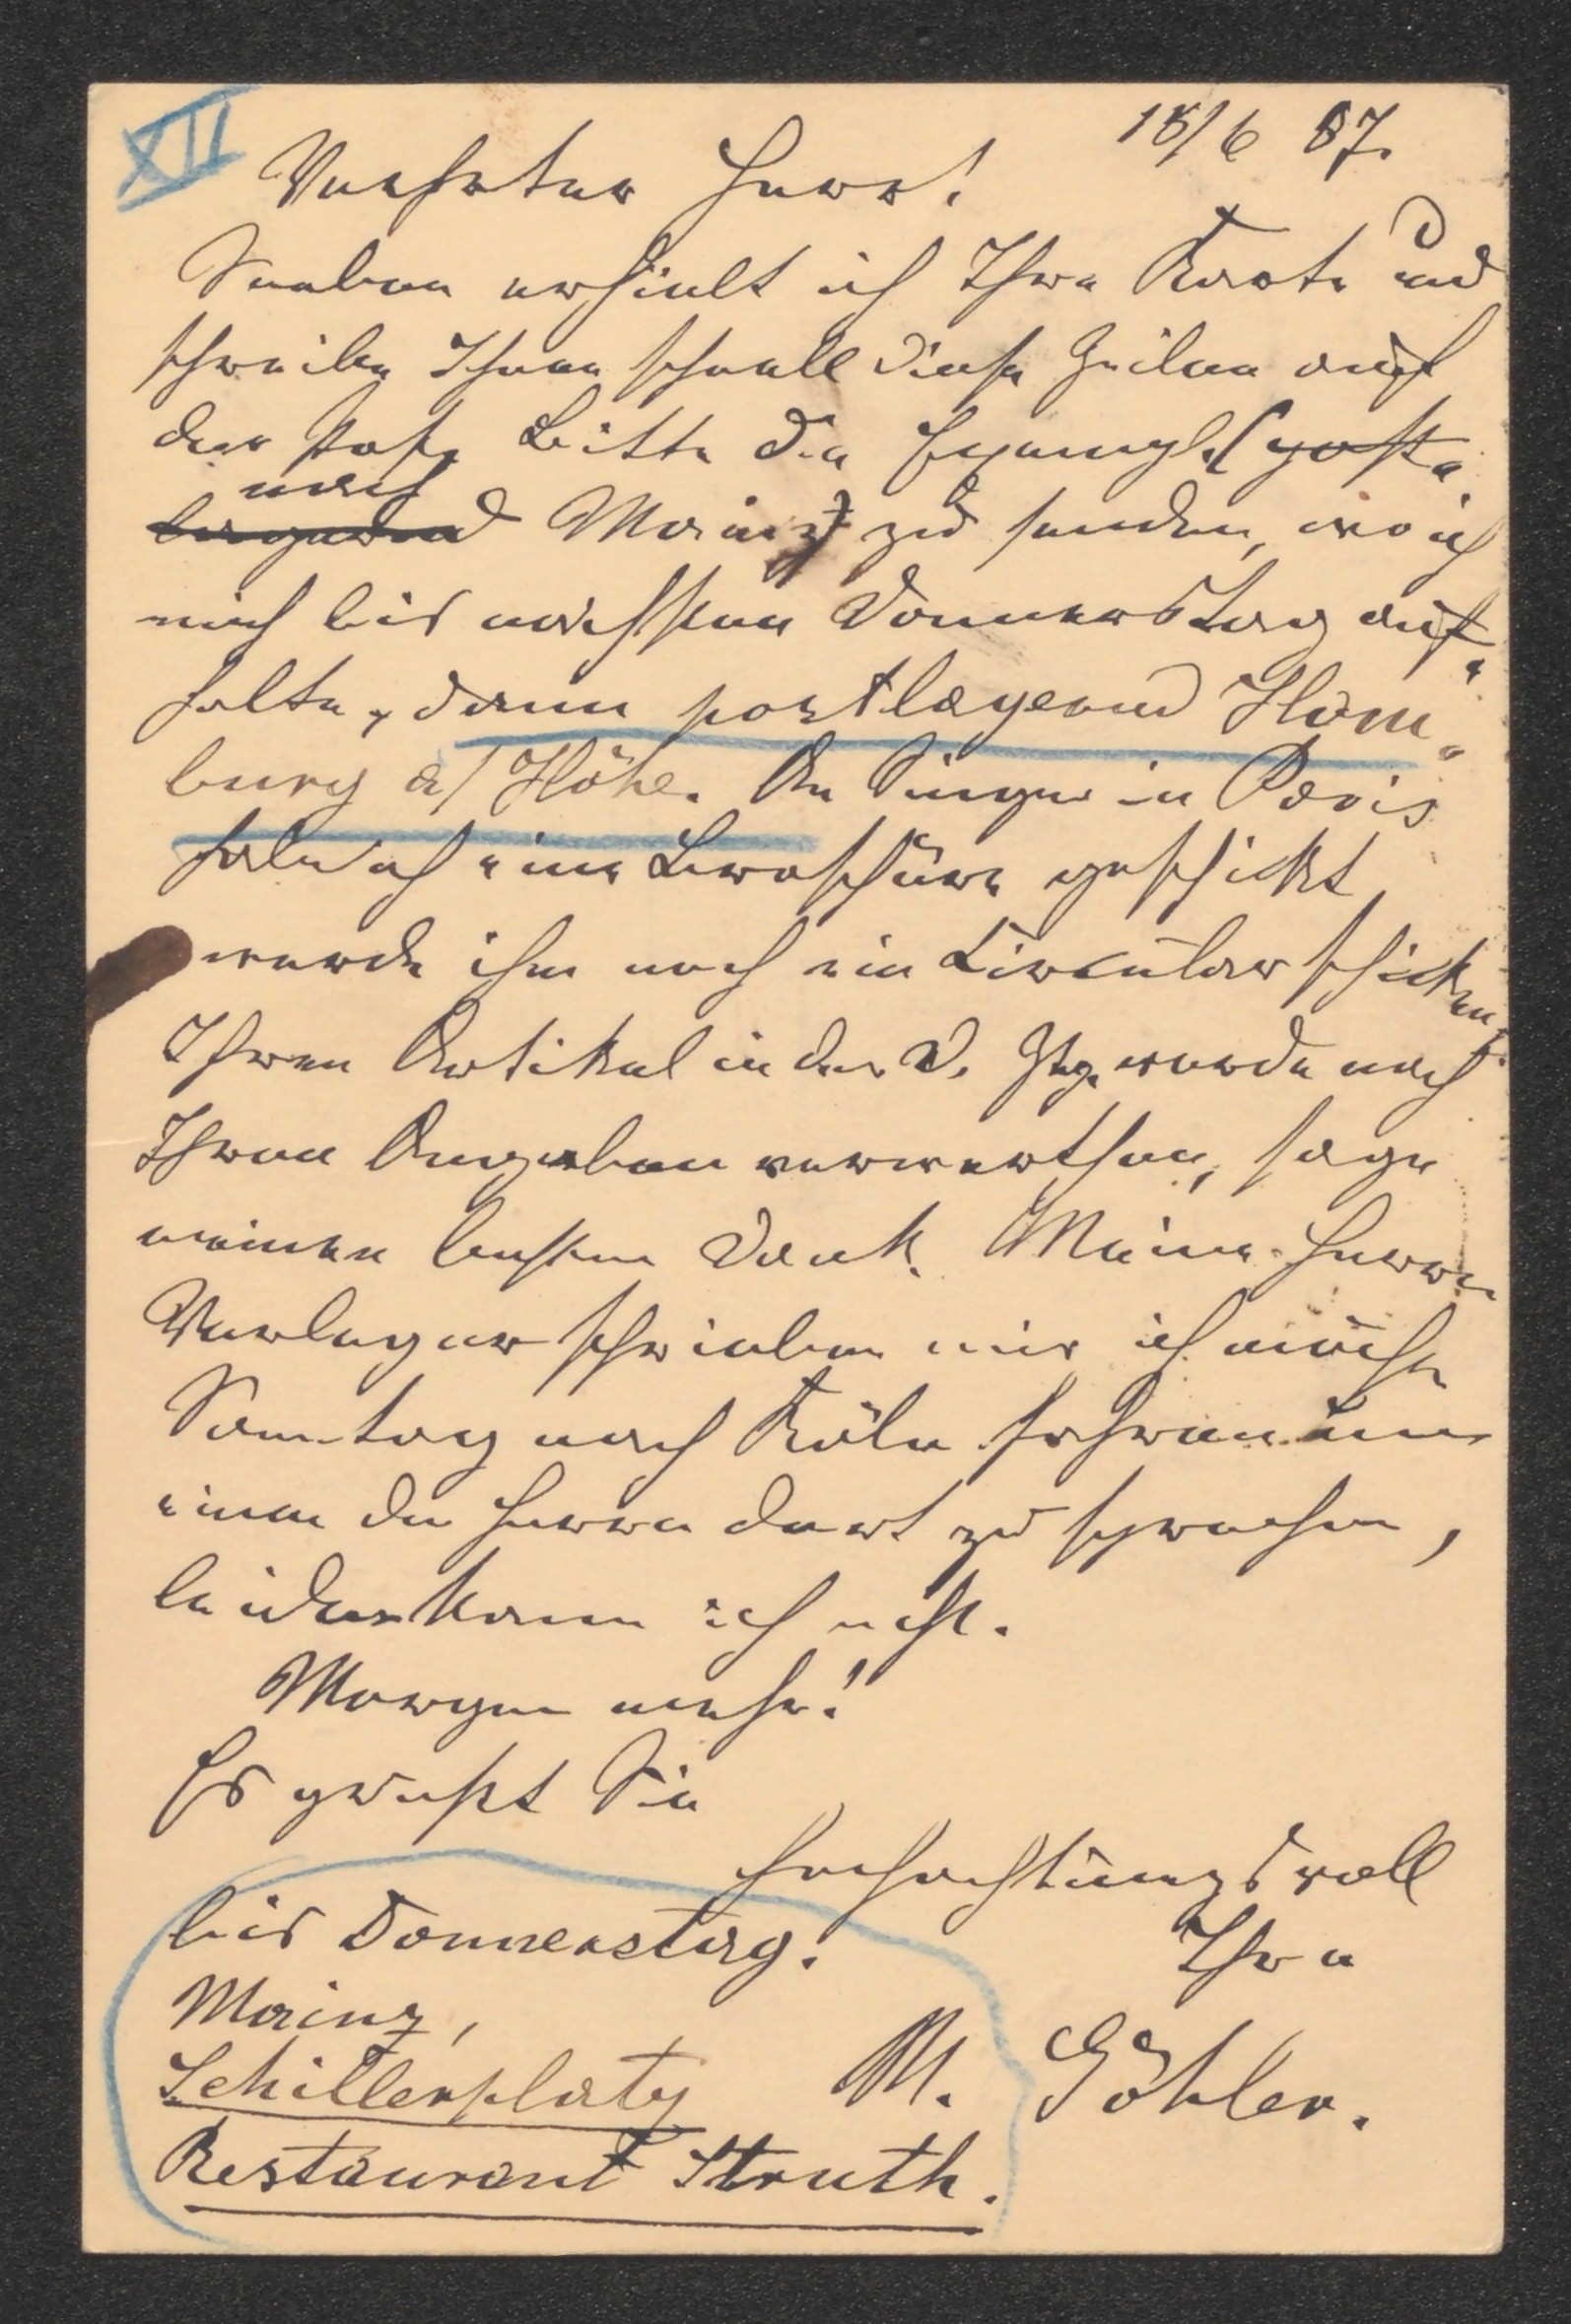 XII
18/6 87.
Verehrter Herr!
Soeben erhielt ich Ihre Karte und
schreibe Ihnen schnell diese Zeilen auf
der Post. Bitte die Exempl. (post-
nach
lagernd Mainz) zu senden, wo ich
mich bis nächsten Donnerstag auf-
halte, dann postlagernd Hom-
burg a/ Höhe. An Singer in Paris
habe ich eine Broschüre geschickt,
werde ihm noch ein Circular schicken.
Ihren Artikel in der D. Ztg. werde nach
Ihren Angaben verwerthen, sage
meinen besten Dank. Meine Herren
Verleger schrieben mir ich möchte
Sonntag nach Köln fahren um
einen der Herren dort zu sprechen,
leider kann ich nicht.
Morgen mehr!
Es grüßt Sie
hochachtungsvoll
Ihre
M. Göhler.
bis Donnerstag.
Mainz,
Schillerplatz
Restaurant Struth.